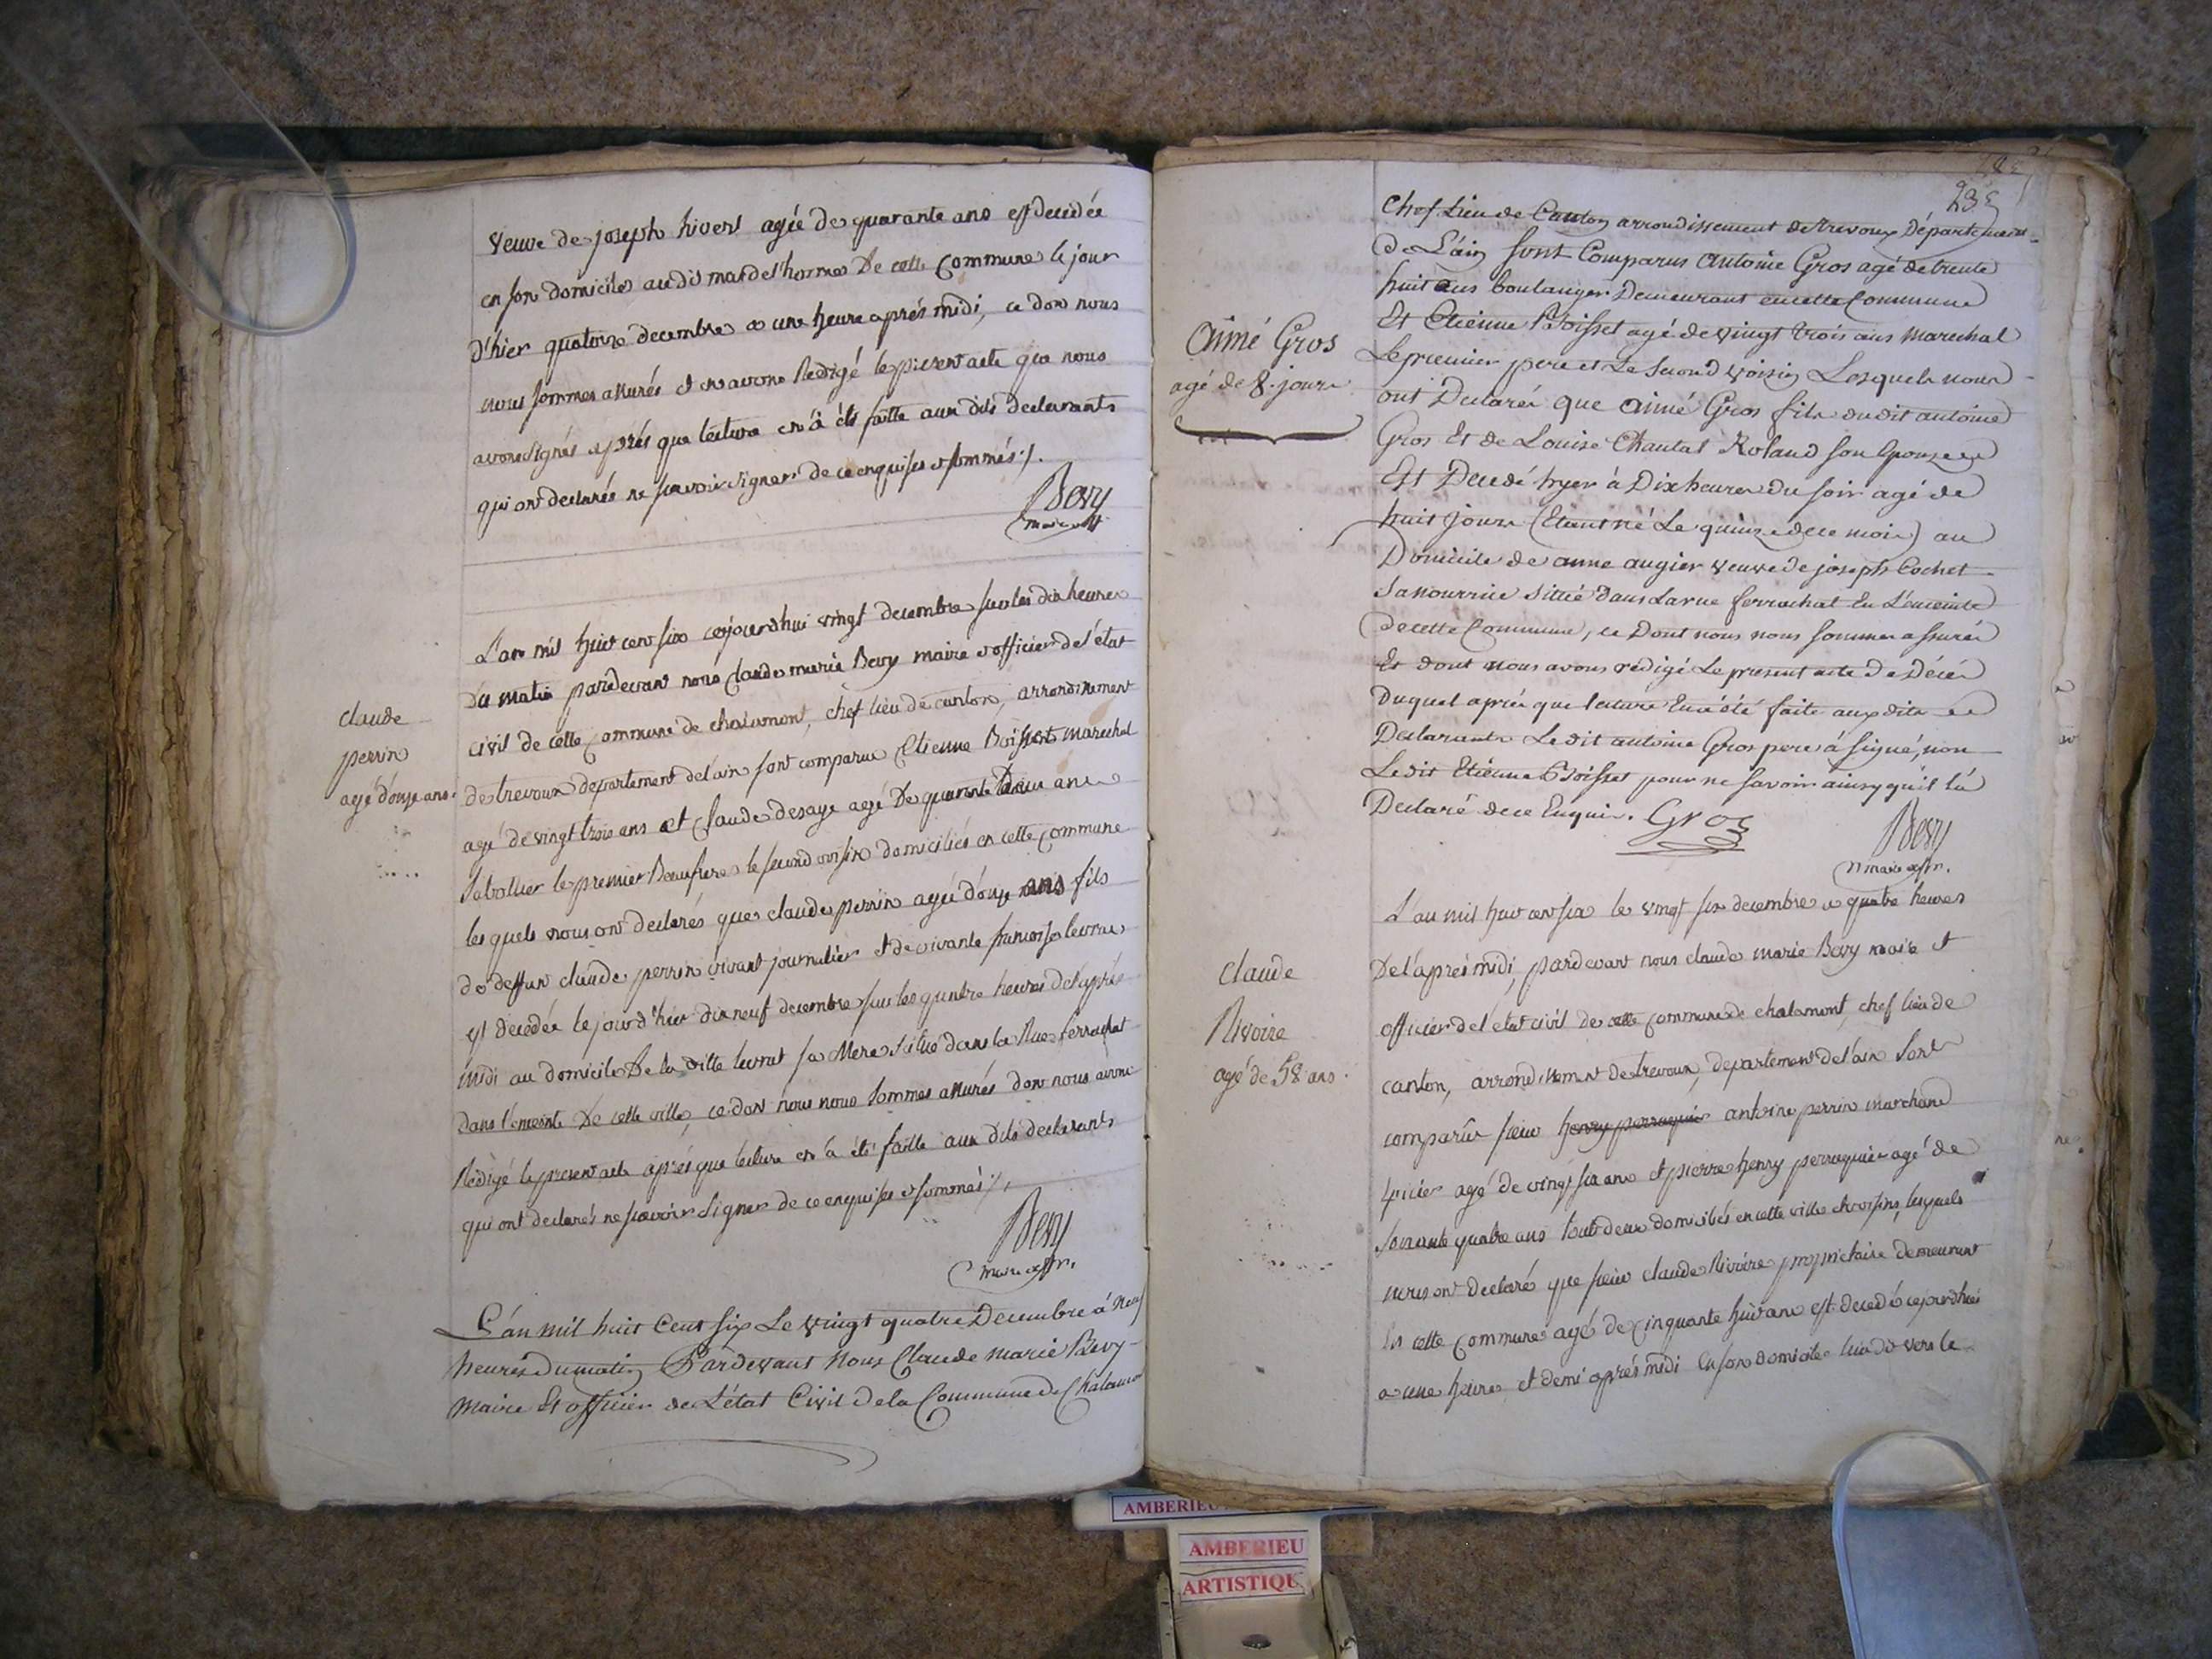 veuve de joseph hivert agée de quarante ans est decedée
en son domicile audit mas de l'horme De cette Commune le jour
d'hier quatorze decembre a une heure aprés midi, ce dont nous
nous sommes assurés et en avons Redigé le present acte que nous
avons signés aprés que lecture en à été faitte aux dits declarants
qui ont declarés ne sçavoir signer de ce enquises et sommés ./.
Bevy
maire
claude
perrin
agé d'onze ans.
L'an mil huit cent six cejourd'hui vingt decembre sur les dix heures
Du matin pardevant nous claude marie Bevy maire et officier de l'état
civil de cette Commune de chalamont, chef lieu de canton, arrondissement
de trevoux departement de l'ain sont comparus Etienne Boisset marechal
agé de vingt trois ans et Claude desaye agé De quarante Deux ans
Sabottier le premier Beaufrere le second voisin domiciliés en cette commune
les quels nous ont declarés que claude perrin agée d'onze ans fils
de deffunt claude perrin vivant journalier et de vivante francoise levrat
est decedée le jour d'hier dix neuf decembre sur les quatre heures de l'aprés
midi au domicile De la ditte levrat sa Mere situé dans la Rue ferrachat
dans l'enceinte De cette ville, ce dont nous nous sommes assurés dont nous avons
Redigé le present acte aprés que lecture en à été faitte aux dits declarants
qui ont declarés ne sçavoir signer de ce enquises et sommés ./.
Bevy
maire
L'an mil huit Cent six Le vingt quatre Decembre à neuf
heures du matin Pardevant Nous Claude Marie Bevy
Maire Et officier de L'état Civil De la Commune de Chalamont
239
Chef Lieu de Canton arrondissement de trevoux Département
De L'ain sont Comparus Antoine Gros agé de trente
huit ans boulanger Demeurant en cette Commune
Et Etienne Boisset agé de vingt trois ans Marechal
Le premier pere et Le second voisin Lesquels nous
ont Declarés que Aimé Gros fils du dit antoine
Gros Et de Louise Chantal Roland son Epouse
Est Decedé hyer à Dix heures du soir agé de
huit jours (Etant né Le quinze de ce mois) au
Domicile de anne augier veuve de joseph Cochet
sa nourrice situé dans La rue ferrachat En L'enceinte
de cette Commune, ce Dont nous nous sommes assurés
Et dont nous avons redigé Le present acte De Décés
Duquel aprés que lecture En a été faite aux dits
Declarants Le dit antoine Gros pere à signé, non
Le dit Etienne Boisset pour ne savoir ainsy qu'il l'a
Declaré de ce Enquis.
Gros
Bevy
maire
Aimé Gros
agé de 8. jours
claude
Rivoire
agé de 58 ans.
L'an mil huit cent six le vingt six decembre a quatre heures
De l'aprés midi, pardevant nous claude marie Bevy maire et
officier de l'etat civil de cette commune de chalamont, chef lieu de
canton, arrondissement de trevoux, departement de l'ain Sont
comparûs sieur henry perruquier antoine perrin marchand
Epicier agé de vingt six ans et pierre henry perruquier agé de
soixante quatre ans tout deux domiciliés en cette ville et voisins, lesquels
nous ont declaré que sieur claude Rivoire proprietaire demeurant
En cette Commune agé de Cinquante huit ans est decedé cejourd'hui
a une heure et demi aprés midi En son domicile lieu dit vers le
AMBERIEU
AMBERIEU
ARTISTIQUE